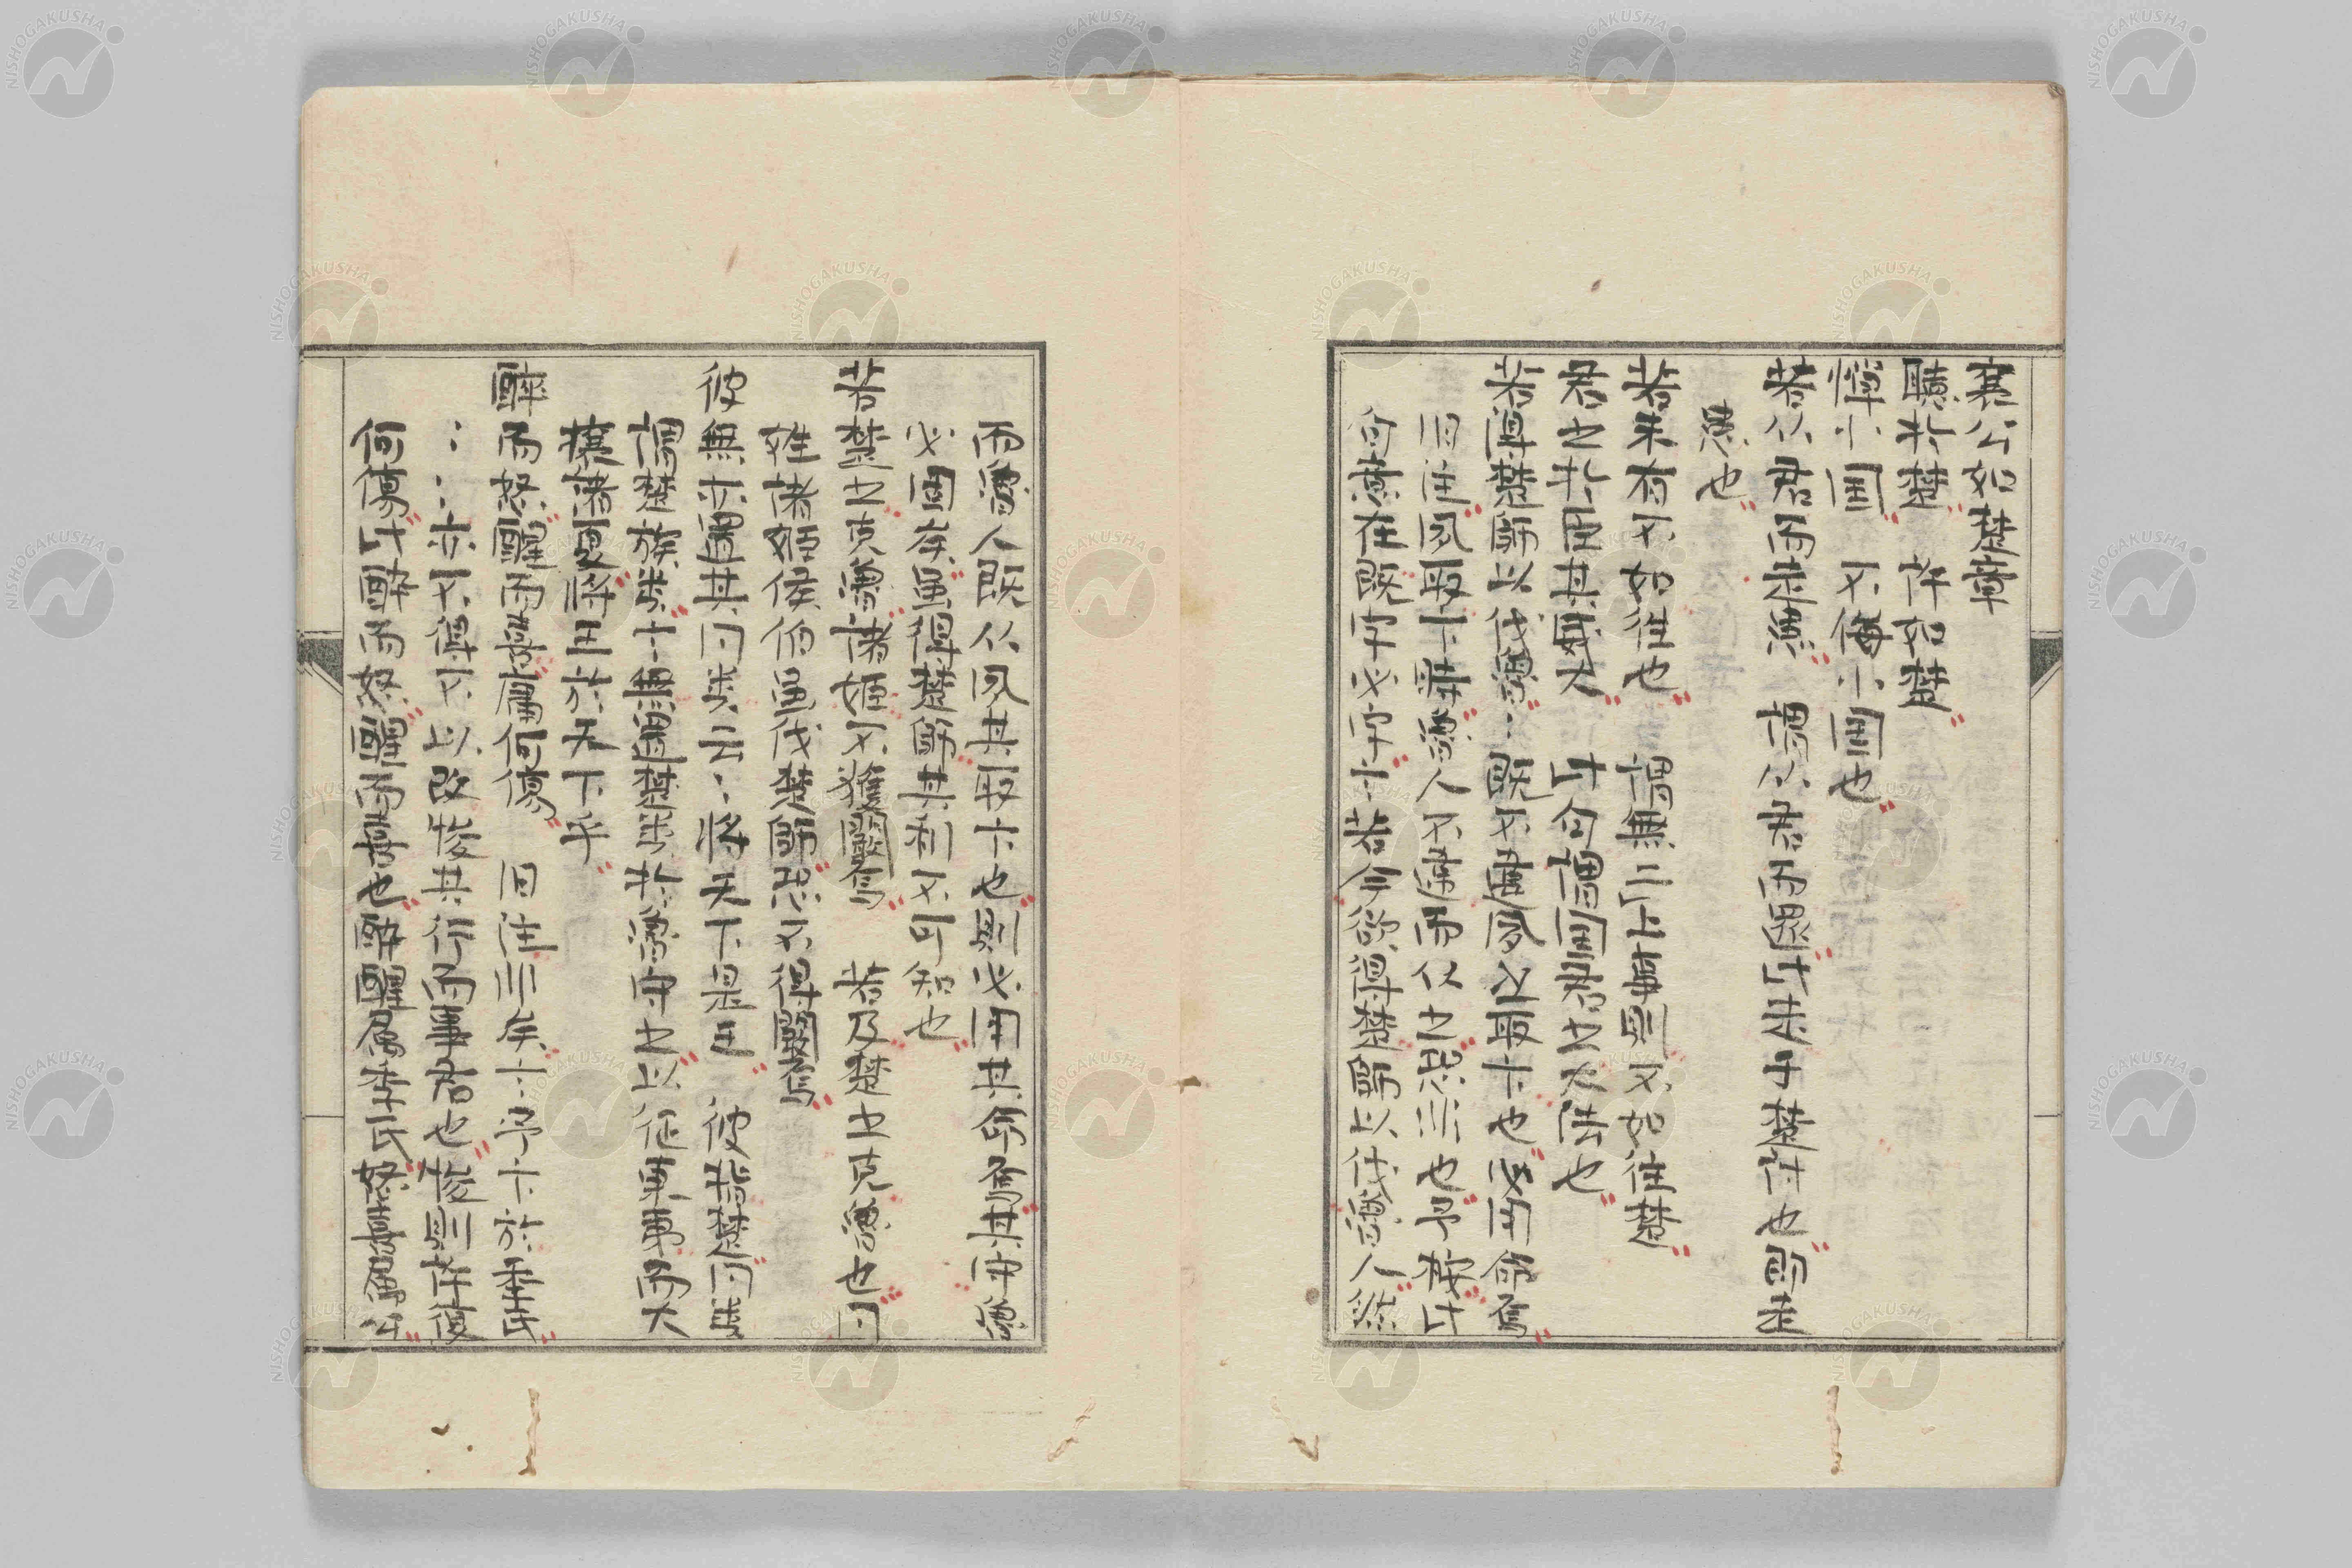 襄公如楚章
聽於楚　許如楚
憚小国　不侮小国也
若从君而走患　謂从君而遇此患于楚許也則走
患也
若未有不如往也　謂無三上事則不如往楚
君之於臣其威大　此句謂国君之大法也
若得楚師以伐魯：既不違夙之取卞也必用命焉
旧注夙取卞時魯人不違而从之恐非也予按此
句藏在既字必字十若今欲得楚師以伐魯人然
而魯人既从夙其取卞也則必用其命焉其守魯
必固矣虽得楚師其利不可知也
若楚之克魯諸姬不獲闚焉　若及楚之克魯也同
姓諸姬侯伯虽伐楚師恐不得闚焉
彼無亦置其同类云：将天下是王　彼指楚同类
謂楚族类十無置楚类於魯守之以征東夷而大
攘諸夏将王於天下乎
醉而怒醒而喜庸何傷　旧注非矣十予卞於季氏
：：亦不得不以改悛其行而事君也悛則許復
何傷此醉而怒醒而喜也醉醒屬季氏怒喜屬公